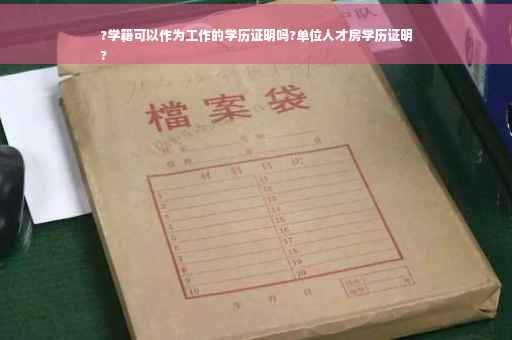 ?学籍可以作为工作的学历证明吗?单位人才房学历证明
?
檔案袋
材料目次
1 11
2 12
3 13
4 14
5 15
6 16
7 17
8 18
9 19
10 20
年 月 日